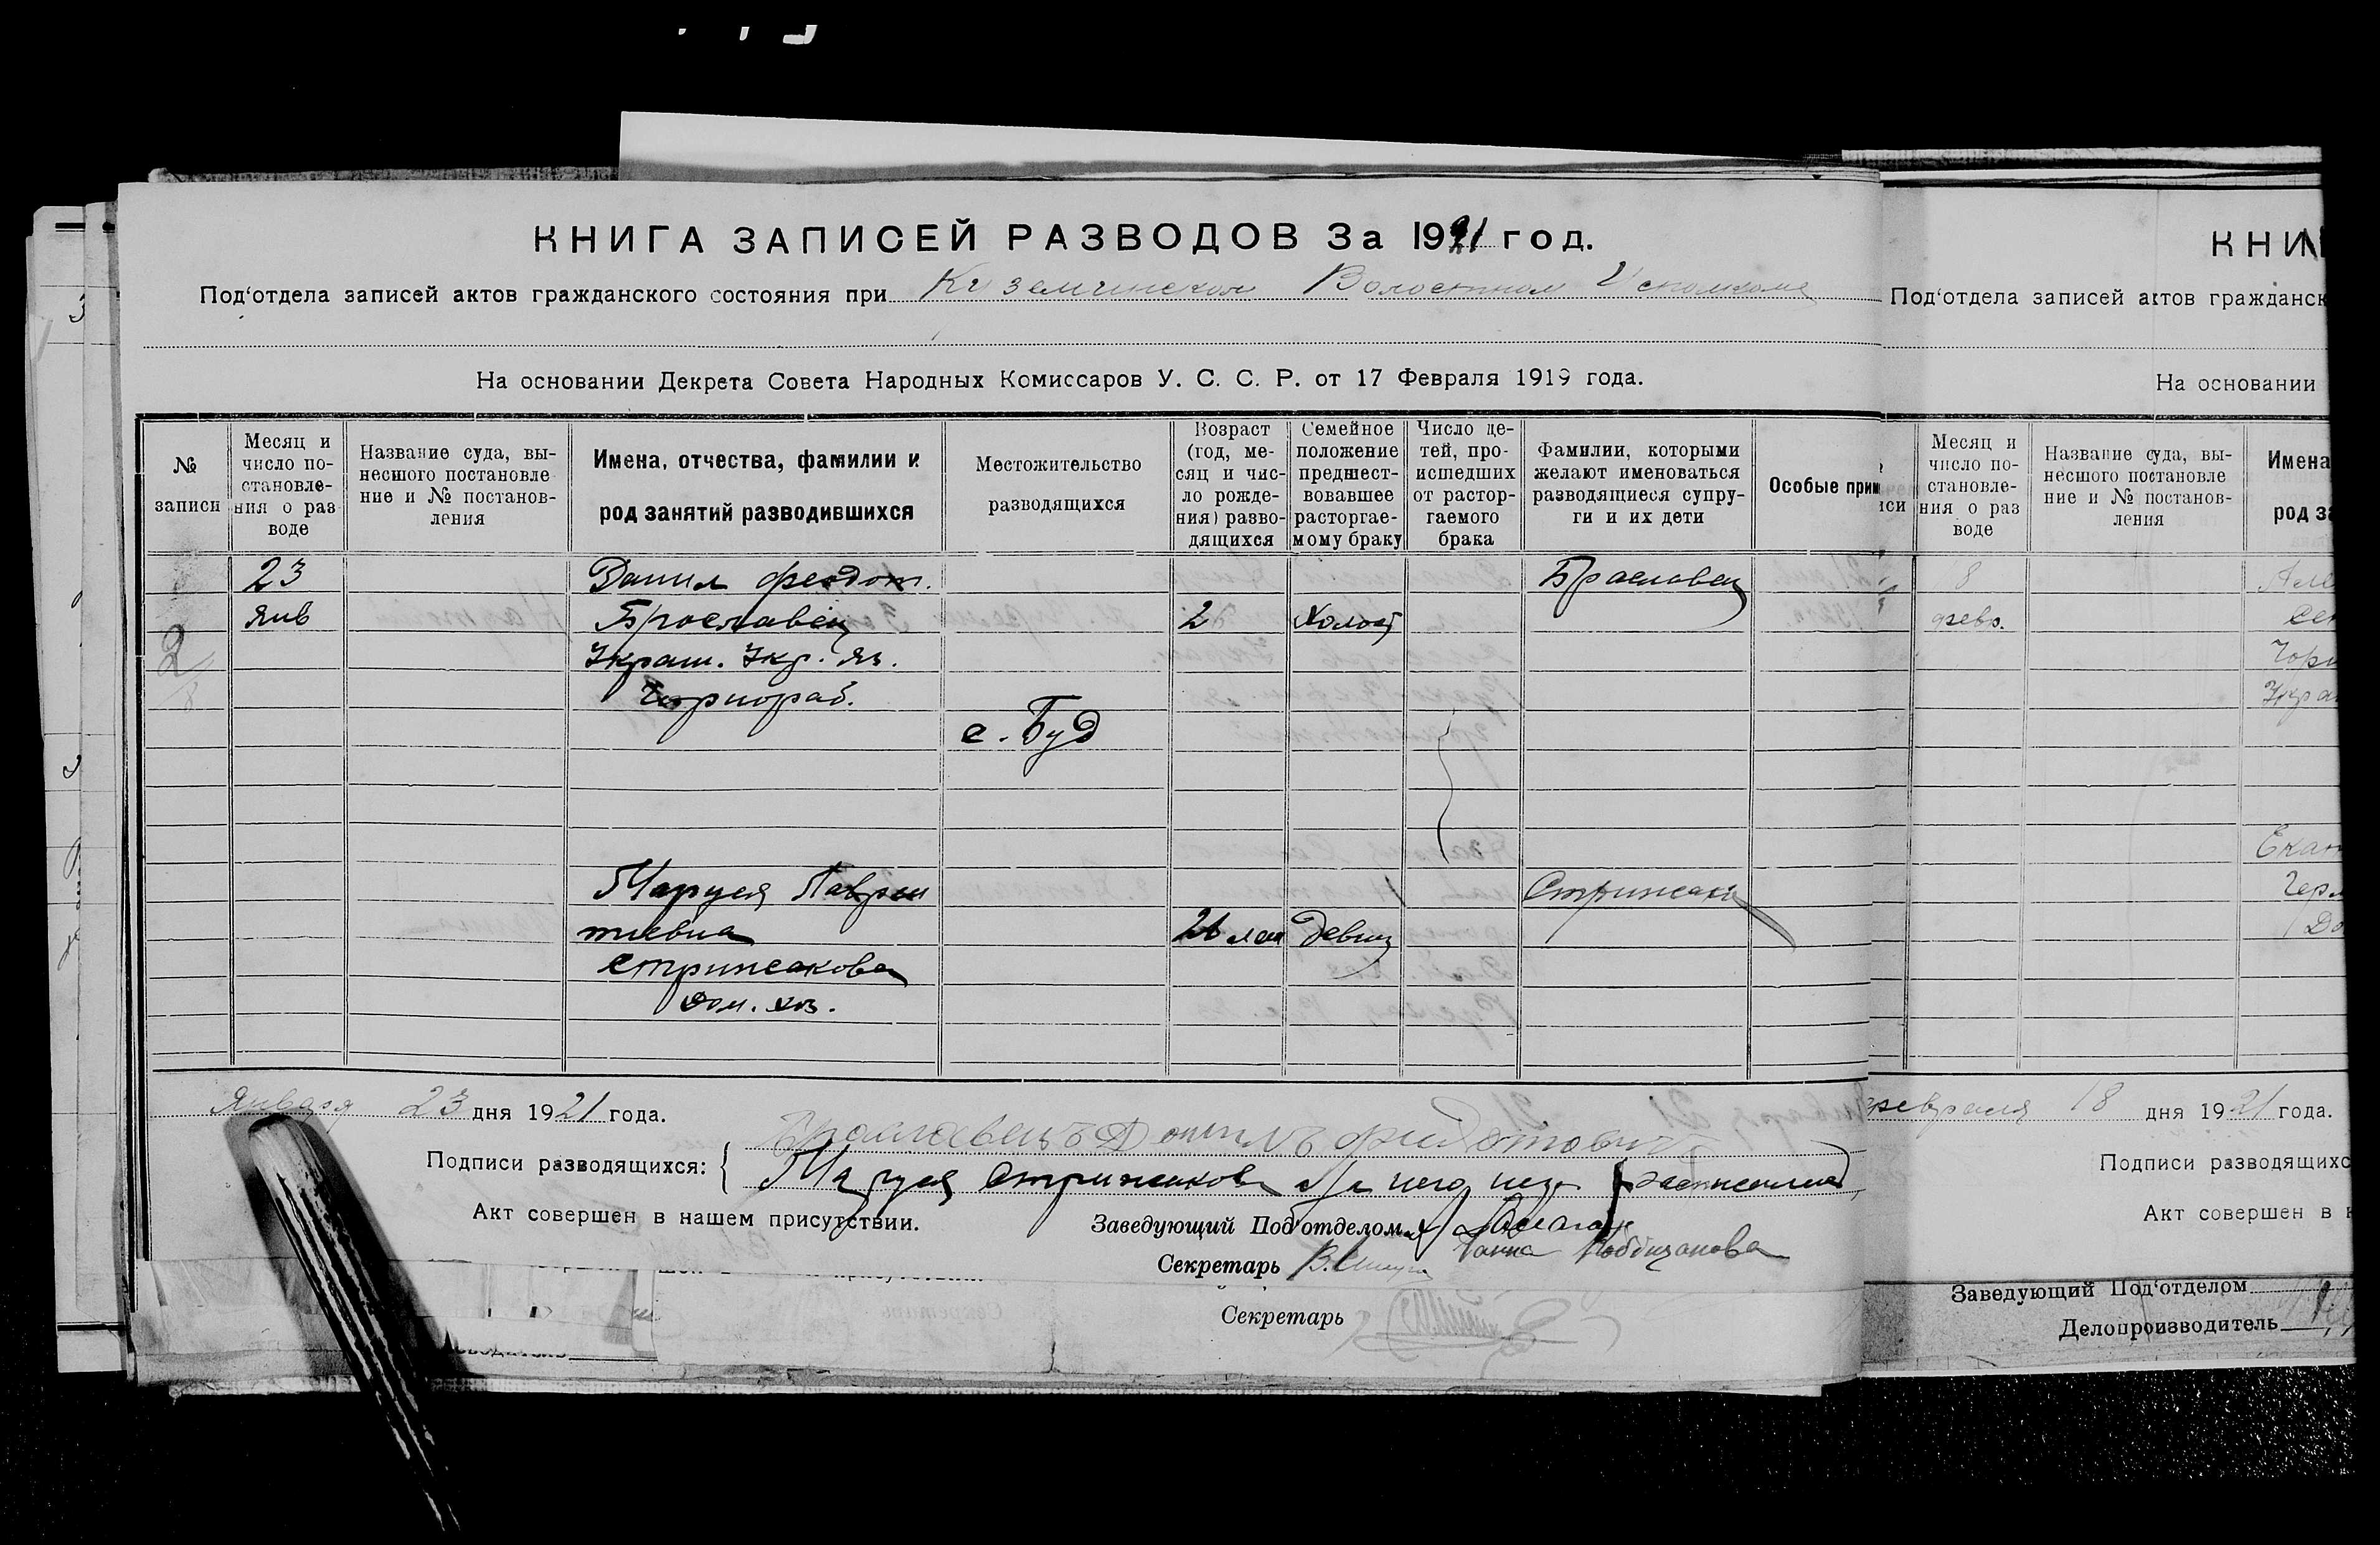 КНИГА ЗАПИСЕЙ РАЗВОДОВ За 1921 год.
Под‘отдела записей актов гражданского состояния при Куземинском Волостном Исполкоме
На основании Декрета Совета Народных Комиссаров У. С. С. Р. от 17 Февраля 1919 года.
№ записи
Месяц и число постановления о разводе
Название суда, вынесшого постановление и № постановления
Имена, отчества, фамилии и род занятий разводившихся
Местожительство разводящихся
Возраст (год, месяц и число рождения) разводящихся
Семейное положение предшествовавшее расторгаемому браку
Число детей, происшедших от расторгаемого брака
Фамилии, которыми желают именоваться разводящиеся супруги и их дети
Особые прим
23 Данил Феодот. Браславец
янв Браславец 26 Холост
2 Украин. Укр. яз.
Чорнораб.
с. Буд
Маруся Лаврен
тиевна 26 лет девиц
Стрижакова
дом. хоз.
Января 23 дня 1921 года.
Подписи разводящихся:
Браславецъ Данилъ Федотович
Маруся Стрижакова
Акт совершен в нашем присутствии.
Заведующий Под‘отделом
Секретарь
Секретарь
КНИ
Под‘отдела записей актов гражданск
На основании
Месяц и число постановления о разводе
Название суда, вынесшого постановление и № постановления
Имена
род за
18
февр.
Екат
февраля 18 дня 1921 года.
Подписи разводящихс
Акт совершен в н
Заведующий Под‘отделом
Делопроизводитель